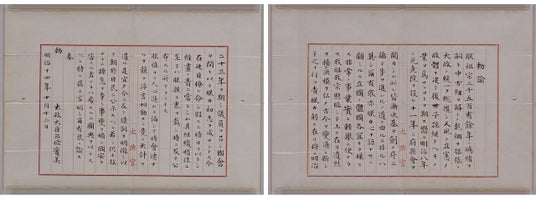 勅諭
朕祖宗二千五百有餘年ノ鴻緒ヲ
嗣キ中古紐ヲ解クノ乾綱ヲ振張シ
大政ノ統一ヲ總攬シ又夙ニ立憲ノ
政體ヲ建テ後世子孫繼クヘキノ
業ヲ為サンコトヲ期ス嚮ニ明治八年
ニ元老院ヲ設ケ十一年ニ府縣會ヲ
開カシム此レ皆漸次基ヲ創メ序ニ
循テ歩ヲ進ムルノ道ニ由ルニ非サルハ
莫シ爾有衆亦朕カ心ヲ諒トセン
顧ミルニ立國ノ體國各宜キヲ殊ニ
ス非常ノ事業實ニ輕擧ニ便ナラ
ス我祖我宗照臨シテ上ニ在リ遺烈
ヲ揚ケ洪模ヲ弘メ古今ヲ變通シ斷シ
テ之ヲ行フ責朕カ躬ニ在リ將ニ明治
太政官
二十三年ヲ期シ議員ヲ召シ國會
ヲ開キ以テ朕カ初志ヲ成サントス今
在廷臣僚ニ命シ假スニ時日ヲ以テシ
經畫ノ責ニ當ラシム其組織權限ニ
至テハ朕親ラ衷ヲ裁シ時ニ及テ公
布スル所アラントス
朕惟フニ人心進ムニ偏シテ時會速ナ
ルヲ競フ浮言相動カシ竟ニ大計ヲ
遺ル是レ宜シク今ニ及テ謨訓ヲ明徴シ以
テ朝野臣民ニ公示スヘシ若シ仍ホ故
サラニ躁急ヲ爭ヒ事變ヲ煽シ國安ヲ
害スル者アラハ處スルニ國典ヲ以テス
ヘシ特ニ茲ニ言明シ爾有衆ニ諭ス
奉
勅 太政大臣三條實美
明治十四年十月十二日
太政官